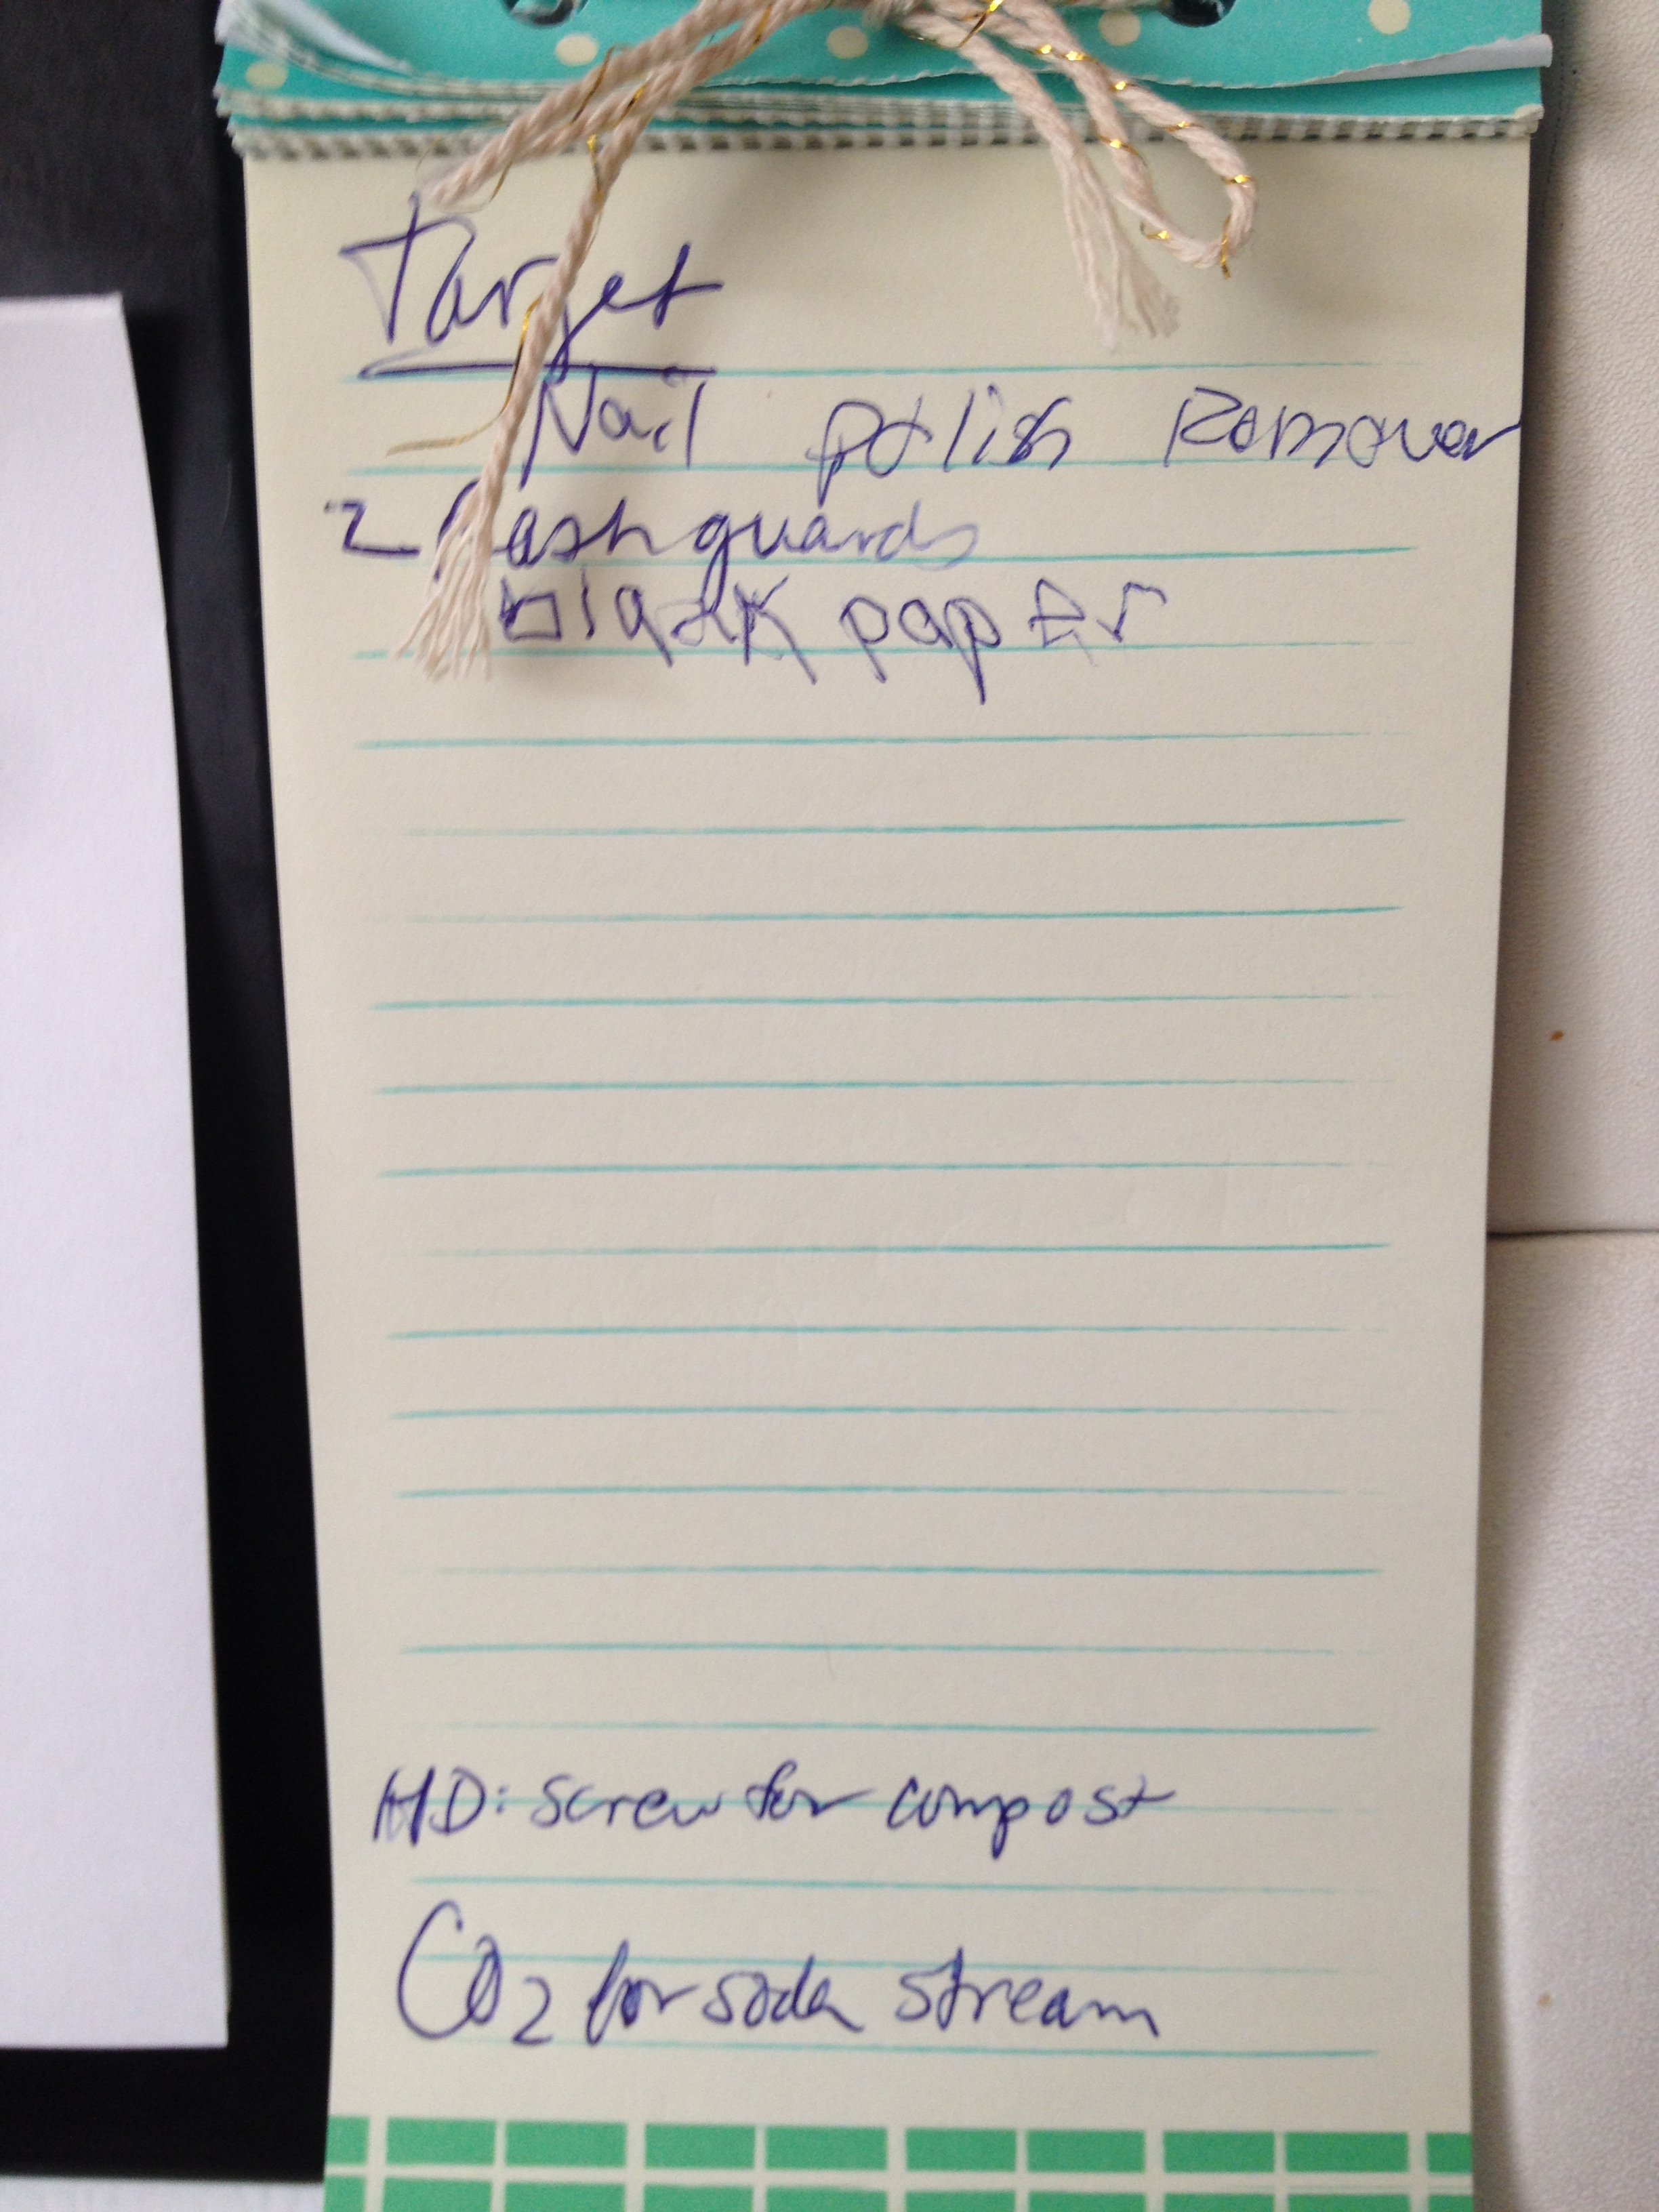 Target
Nail polish Remover
2 rashguards
black paper
HD: screw for compost
CO2 for soda stream